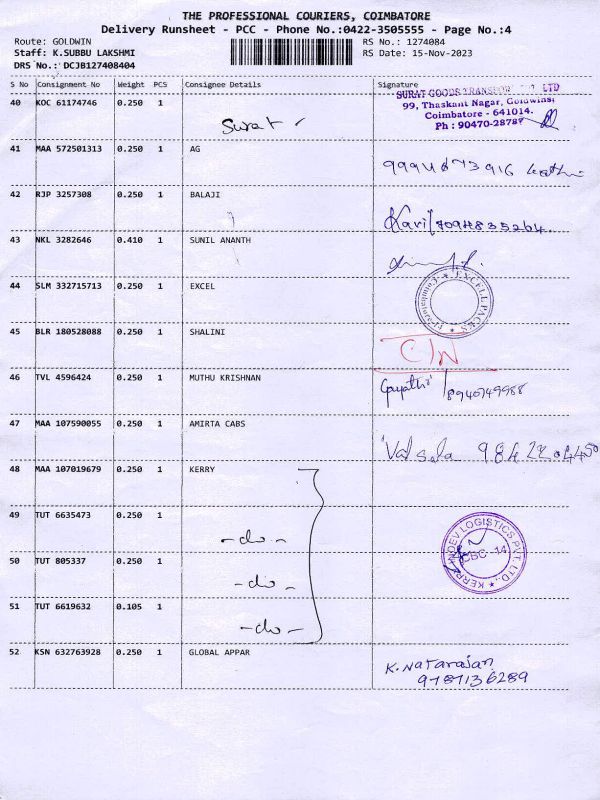 THE PROFESSIONAL COURIERS, COIMBATORE
Delivery Runsheet - PCC - Phone No.:0422-3505555 - Page No.:4
Route: GOLDWIN RS No.: 1274084
Staff: K.SUBBU LAKSHMI RS Date: 15-Nov-2023
DRS No.: DCJB127408404
S No Consignment No Weight PCS Consignee Details Signature
40 KOC 61174746 0.250 1 Surat
SURAT GOODS
99, Thaskant Nagar, Goldwins,
Coimbatore - 641014.
Ph : 90470-28787
41 MAA 572501313 0.250 1 AG
42 RJP 3257308 0.250 1 BALAJI
43 NKL 3282646 0.410 1 SUNIL ANANTH
44 SLM 332715713 0.250 1 EXCEL
EXCELL PACKS
45 BLR 180528088 0.250 1 SHALINI
46 TVL 4596424 0.250 1 MUTHU KRISHNAN Gayathri / 8940749988
47 MAA 107590055 0.250 1 AMIRTA CABS Valsala 9842204450
48 MAA 107019679 0.250 1 KERRY
49 TUT 6635473 0.250 1 -do-
KERRY INDEV LOGISTICS PVT. LTD.,
CBC-14
50 TUT 805337 0.250 1 -do-
51 TUT 6619632 0.105 1 -do-
52 KSN 632763928 0.250 1 GLOBAL APPAR K. Natarajan
9787136289